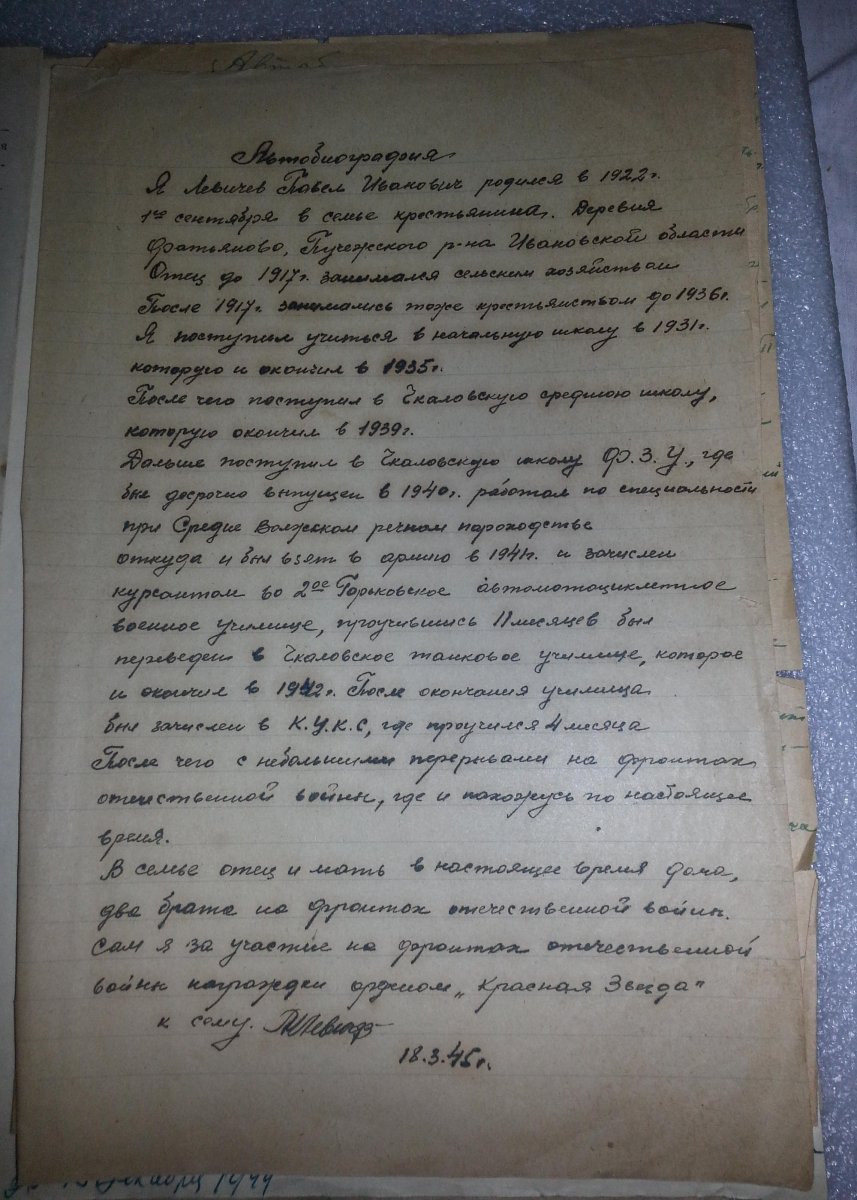 Автоб
Автобиография
Я Левичев Павел Иванович родился в 1922г.
1го сентября в семье крестьянина. Деревня
Фатьяново, Пучежского р-на Ивановской области
Отец до 1917г. занимался сельским хозяйством
После 1917г. занимались тоже крестьянством до 1936г.
Я поступил учиться в начальную школу в 1931г.
которую и окончил в 1935г.
После чего поступил в Чкаловскую среднюю школу,
которую окончил в 1939г.
Дальше поступил в Чкаловскую школу Ф.З.У., где
был досрочно выпущен в 1940г. работал по специальности
при Средне Волжском речном пароходстве
откуда и был взят в армию в 1941г. и зачислен
курсантом во 2ое Горьковское автомотоциклетное
военное училище, проучившись 11 месяцев был
переведен в Чкаловское танковое училище, которое
и окончил в 1942г. После окончания училища
был зачислен в К.У.К.С, где проучился 4 месяца
После чего с небольшими перерывами на фронтах
отечественной войны, где и нахожусь по настоящее
время.
В семье отец и мать в настоящее время дома,
два брата на фронтах отечественной войны.
Сам я за участие на фронтах отечественной
войны награжден орденом „Красная Звезда"
к сему.
18.3.45г.
декабря 1944